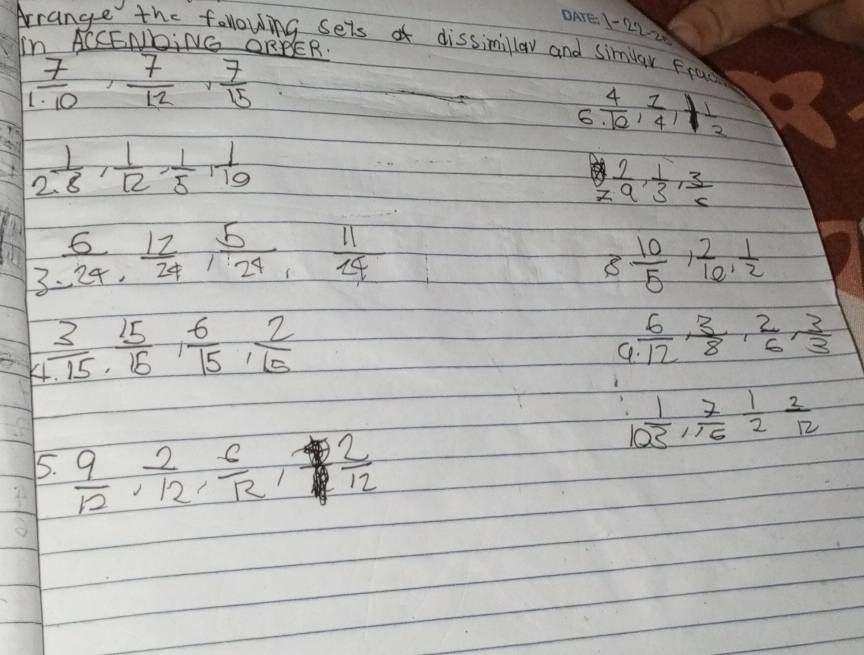 DATE: 1-22-2
Arrange the following sets of dissimillar and similar Frac
in ACCENDING ORDER.
1. 7/10, 7/12, 7/15
2. 1/8, 1/12, 1/5, 1/19
3. 6/24, 12/24, 5/24, 11/24
4. 3/15, 15/15, 6/15, 2/15
5. 9/12, 2/12, 6/12, 2/12
6. 4/10, 2/4, 1/2
7. 2/9, 1/3, 3/6
8 10/5, 2/10, 1/2
9. 6/12, 3/8, 2/6, 3/3
10 1/3, 1/2 2/12